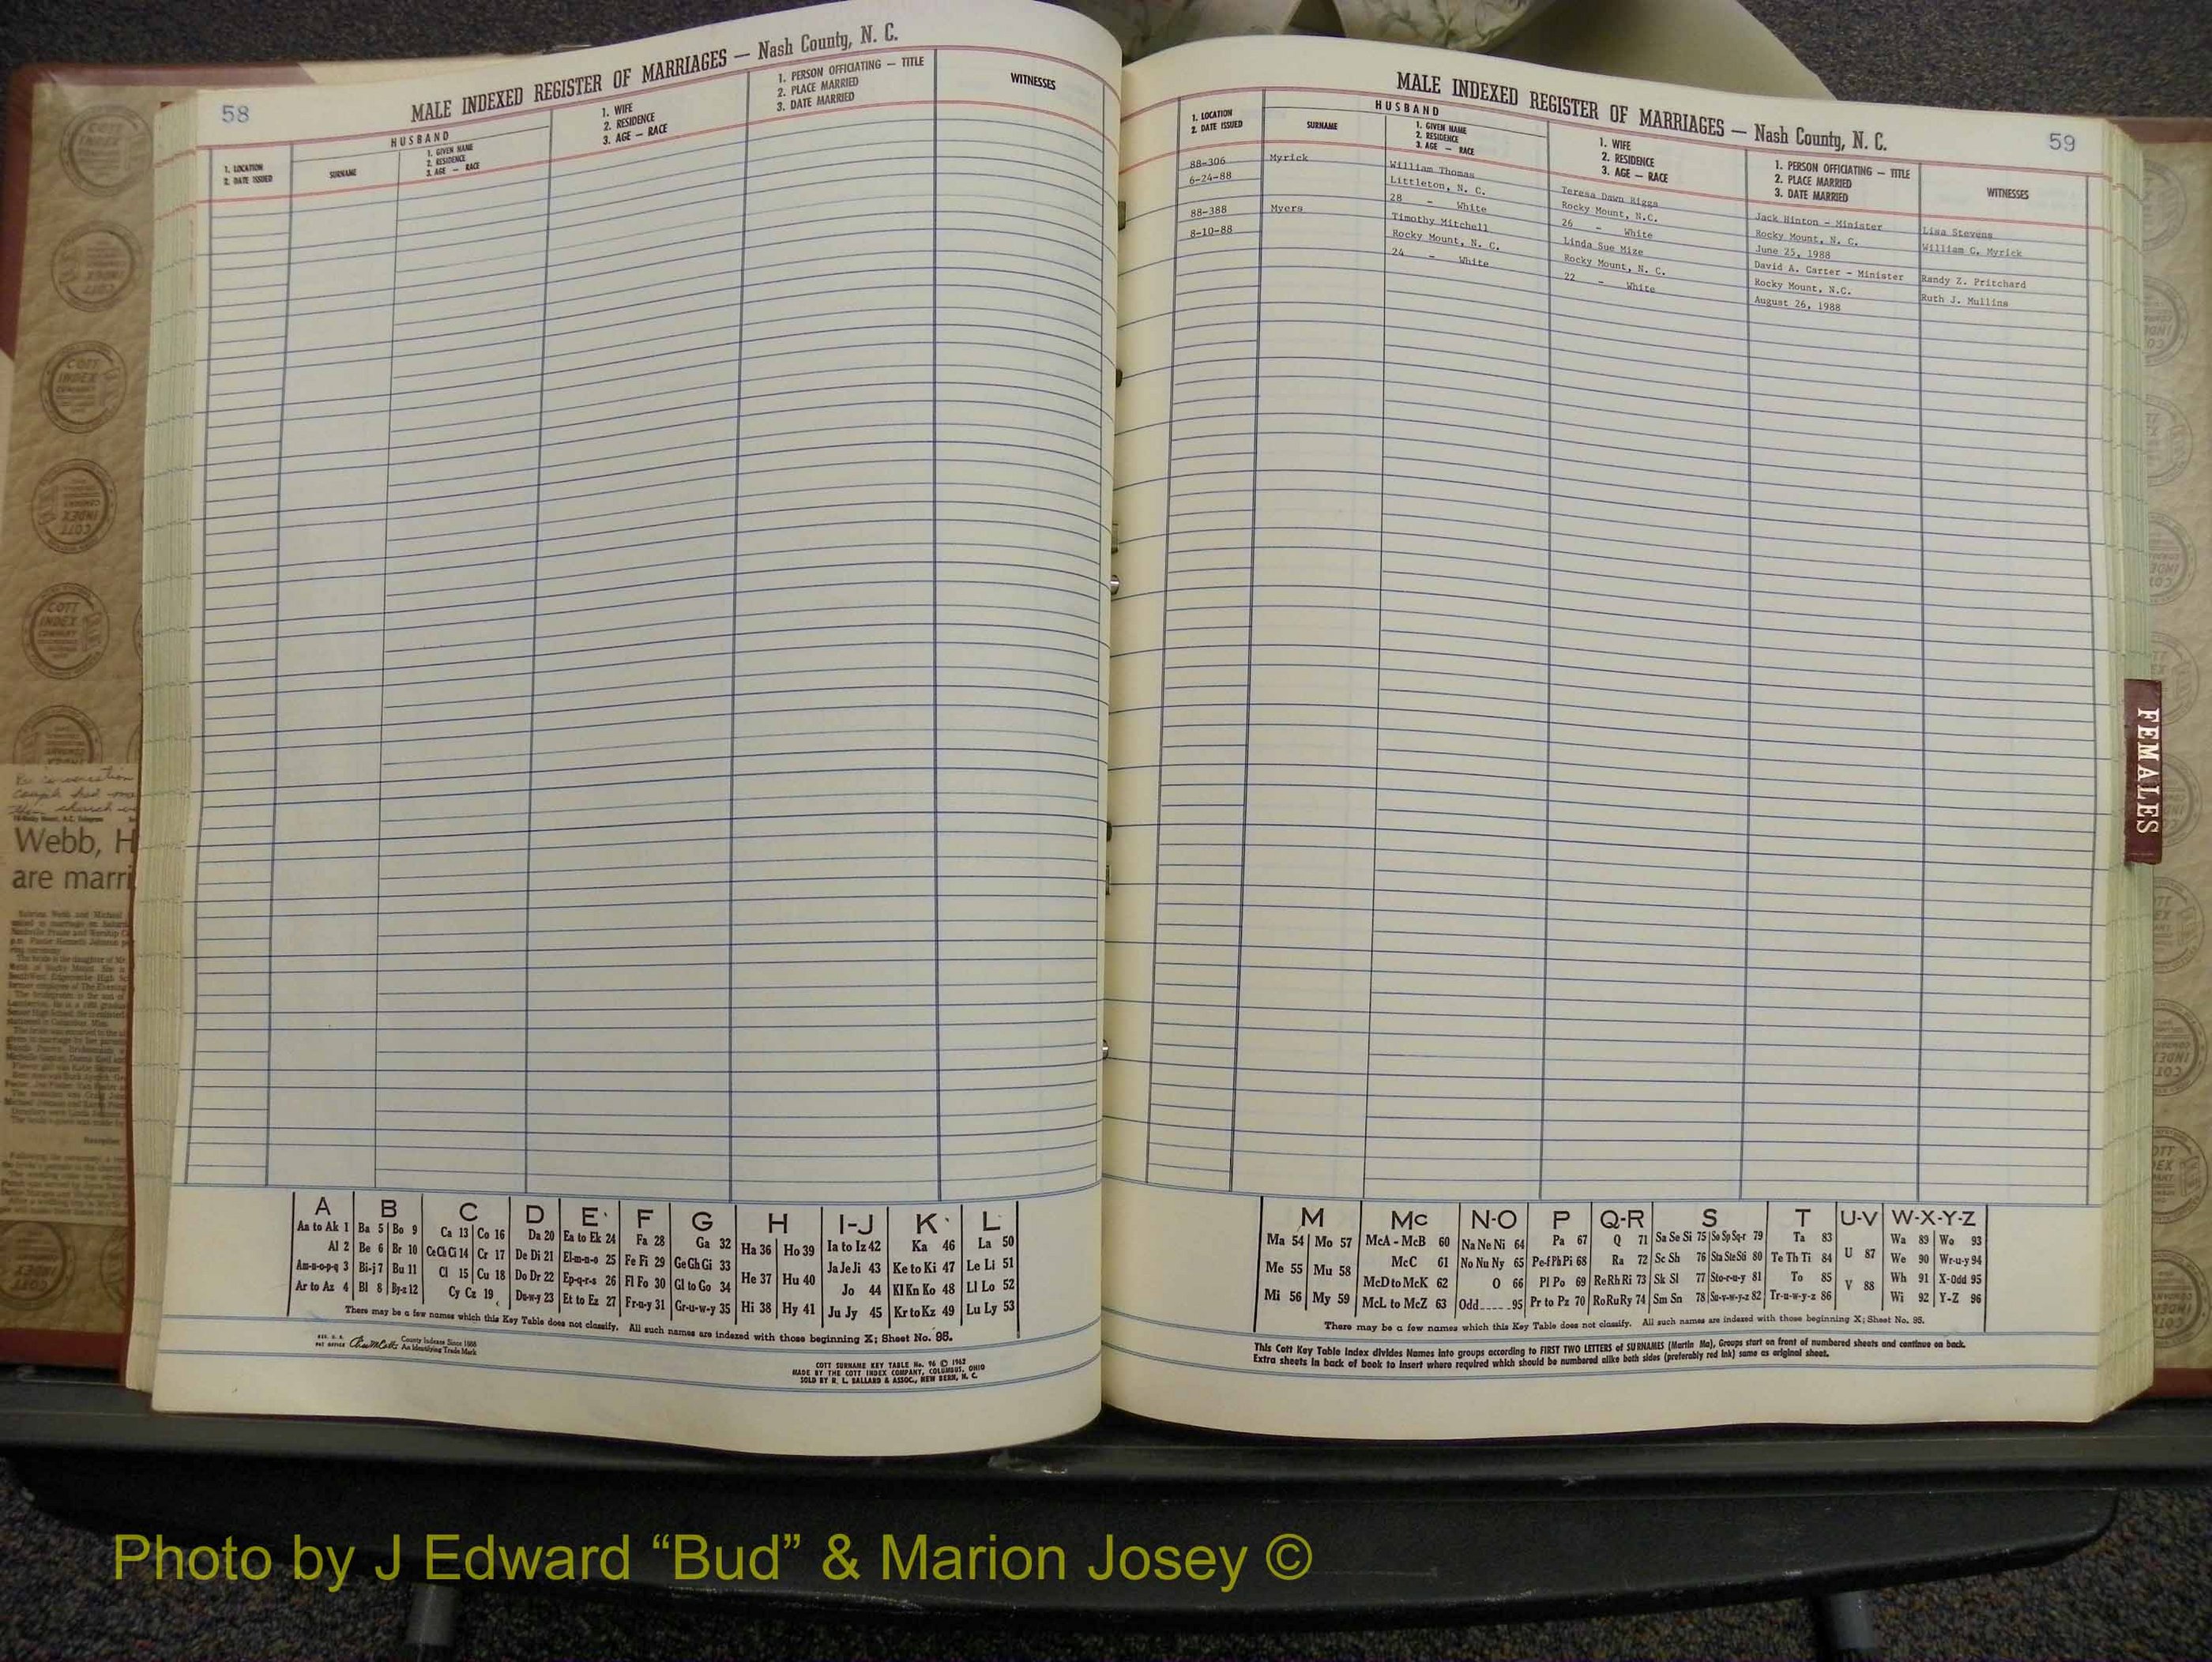 58
MALE INDEXED REGISTER OF MARRIAGES — Nash County, N. C.
1. LOCATION
2. DATE ISSUED
HUSBAND
SURNAME
1. GIVEN NAME
2. RESIDENCE
3. AGE — RACE
1. WIFE
2. RESIDENCE
3. AGE — RACE
1. PERSON OFFICIATING — TITLE
2. PLACE MARRIED
3. DATE MARRIED
WITNESSES
MALE INDEXED REGISTER OF MARRIAGES — Nash County, N. C.
59
1. LOCATION
2. DATE ISSUED
HUSBAND
SURNAME
1. GIVEN NAME
2. RESIDENCE
3. AGE — RACE
1. WIFE
2. RESIDENCE
3. AGE — RACE
1. PERSON OFFICIATING — TITLE
2. PLACE MARRIED
3. DATE MARRIED
WITNESSES
88-306
6-24-88
Myrick
William Thomas
Littleton, N. C.
28 - White
Teresa Dawn Riggs
Rocky Mount, N.C.
26 - White
Jack Hinton - Minister
Rocky Mount, N. C.
June 25, 1988
Lisa Stevens
William C. Myrick
88-388
8-10-88
Myers
Timothy Mitchell
Rocky Mount, N. C.
24 - White
Linda Sue Mize
Rocky Mount, N. C.
22 - White
David A. Carter - Minister
Rocky Mount, N.C.
August 26, 1988
Randy Z. Pritchard
Ruth J. Mullins
FEMALES
COTT
INDEX
COMPANY
Webb, H
are marri
A B C D E F G H I-J K L
Aa to Ak 1 Ba 5 Bo 9 Ca 13 Co 16 Da 20 Ea to Ek 24 Fa 28 Ga 32 Ha 36 Ho 39 Ia to Iz 42 Ka 46 La 50
Al 2 Be 6 Br 10 Ce Ch Ci 14 Cr 17 De Di 21 El-m-n-o 25 Fe Fi 29 Ge Gh Gi 33 He 37 Hu 40 Ja Je Ji 43 Ke to Ki 47 Le Li 51
Am-n-o-p-q 3 Bi-j 7 Bu 11 Cl 15 Cu 18 Do Dr 22 Ep-q-r-s 26 Fl Fo 30 Gl to Go 34 Jo 44 Kl Kn Ko 48 Ll Lo 52
Ar to Az 4 Bl 8 By-z 12 Cy Cz 19 Du-w-y 23 Et to Ez 27 Fr-u-y 31 Gr-u-w-y 35 Hi 38 Hy 41 Ju Jy 45 Kr to Kz 49 Lu Ly 53
There may be a few names which this Key Table does not classify. All such names are indexed with those beginning X; Sheet No. 95.
County Indexes Since 1888
An Identifying Trade Mark
COTT SURNAME KEY TABLE No. 96 © 1962
MADE BY THE COTT INDEX COMPANY, COLUMBUS, OHIO
SOLD BY R. L. BALLARD & ASSOC., NEW BERN, N. C.
M Mc N-O P Q-R S T U-V W-X-Y-Z
Ma 54 Mo 57 McA - McB 60 Na Ne Ni 64 Pa 67 Q 71 Sa Se Si 75 So Sp Sq-r 79 Ta 83 U 87 Wa 89 Wo 93
Me 55 Mu 58 McC 61 No Nu Ny 65 Pe-f Ph Pi 68 Ra 72 Sc Sh 76 Sta Ste Sti 80 Te Th Ti 84 We 90 Wr-u-y 94
McD to McK 62 O 66 Pl Po 69 Re Rh Ri 73 Sk Sl 77 Sto-r-u-y 81 To 85 V 88 Wh 91 X-Odd 95
Mi 56 My 59 McL to McZ 63 Odd 95 Pr to Pz 70 Ro Ru Ry 74 Sm Sn 78 Su-v-w-y-z 82 Tr-u-w-y-z 86 Wi 92 Y-Z 96
There may be a few names which this Key Table does not classify. All such names are indexed with those beginning X; Sheet No. 95.
This Cott Key Table Index divides Names into groups according to FIRST TWO LETTERS of SURNAMES (Martin Ma), Groups start on front of numbered sheets and continue on back.
Extra sheets in back of book to insert where required which should be numbered alike both sides (preferably red ink) same as original sheet.
Photo by J Edward “Bud” & Marion Josey ©